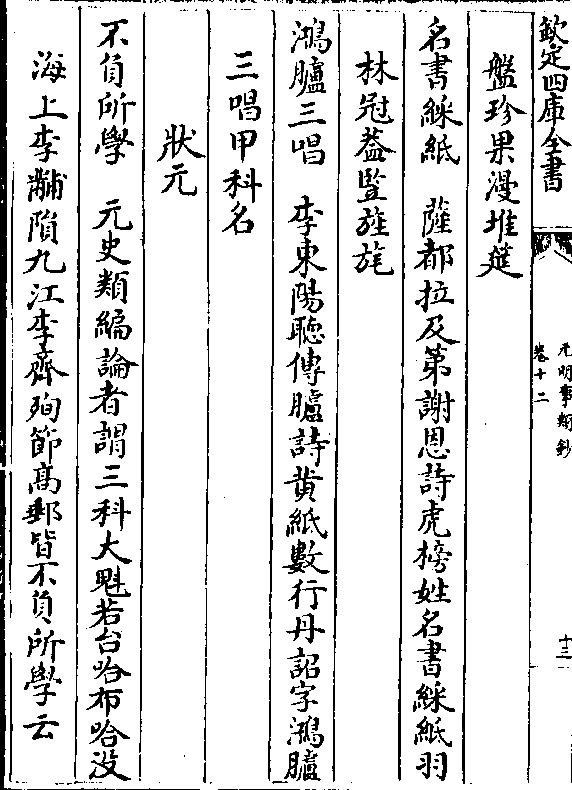 欽定四庫全書
元明事類鈔
卷十二
十三
盤珍果漫堆筵
名書綵紙　薩都拉及第謝恩詩虎榜姓名書綵紙羽
林冠葢䜿旌旄
鴻臚三唱　李東陽聽傳臚詩黄紙數行丹詔字鴻臚
三唱甲科名
狀元
不負所學　元史類編論者謂三科大魁若台哈布哈没
海上李黼隕九江李齊殉節高郵皆不負所學云